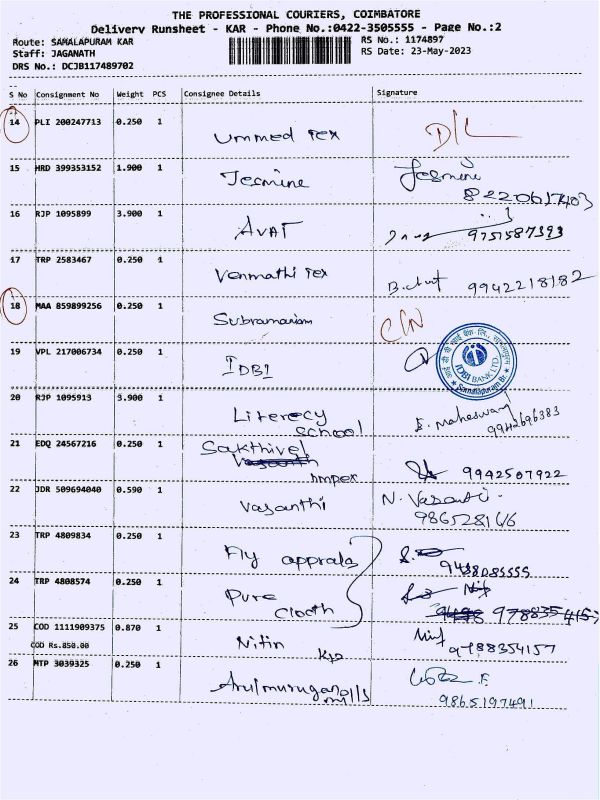 THE PROFESSIONAL COURIERS, COIMBATORE
Delivery Runsheet - KAR - Phone No.:0422-3505555 - Page No.:2
Route: SAMALAPURAM KAR
RS No.: 1174897
Staff: JAGANATH
RS Date: 23-May-2023
DRS No.: DCJB117489702
S No Consignment No Weight PCS Consignee Details Signature
14 PLI 200247713 0.250 1 Ummed Tex D/L
15 HRD 399353152 1.900 1 Jesmine Jesmine
8220617403
16 RJP 1095899 3.900 1 AVAT 9751587393
17 TRP 2583467 0.250 1 Venmathi Tex 9942218182
18 MAA 859899256 0.250 1 Subramaniam
19 VPL 217006734 0.250 1 IDBI
आई डी बी आई बैंक लि.
IDBI BANK LTD.
Samalapuram Br.
20 RJP 1095913 3.900 1 Literecy
school
E. Maheswari
9942696383
21 EDQ 24567216 0.250 1 Sakthivel
Impex
9942507922
22 JDR 509694040 0.590 1 Vasanthi N. Vasanti
9865281616
23 TRP 4809834 0.250 1 Fly apprals
24 TRP 4808574 0.250 1 Pure
Clooth
25 COD 1111909375 0.870 1 Nitin
COD Rs.850.00
9788354157
26 MTP 3039325 0.250 1 Arulmurugan
mills
9865197491